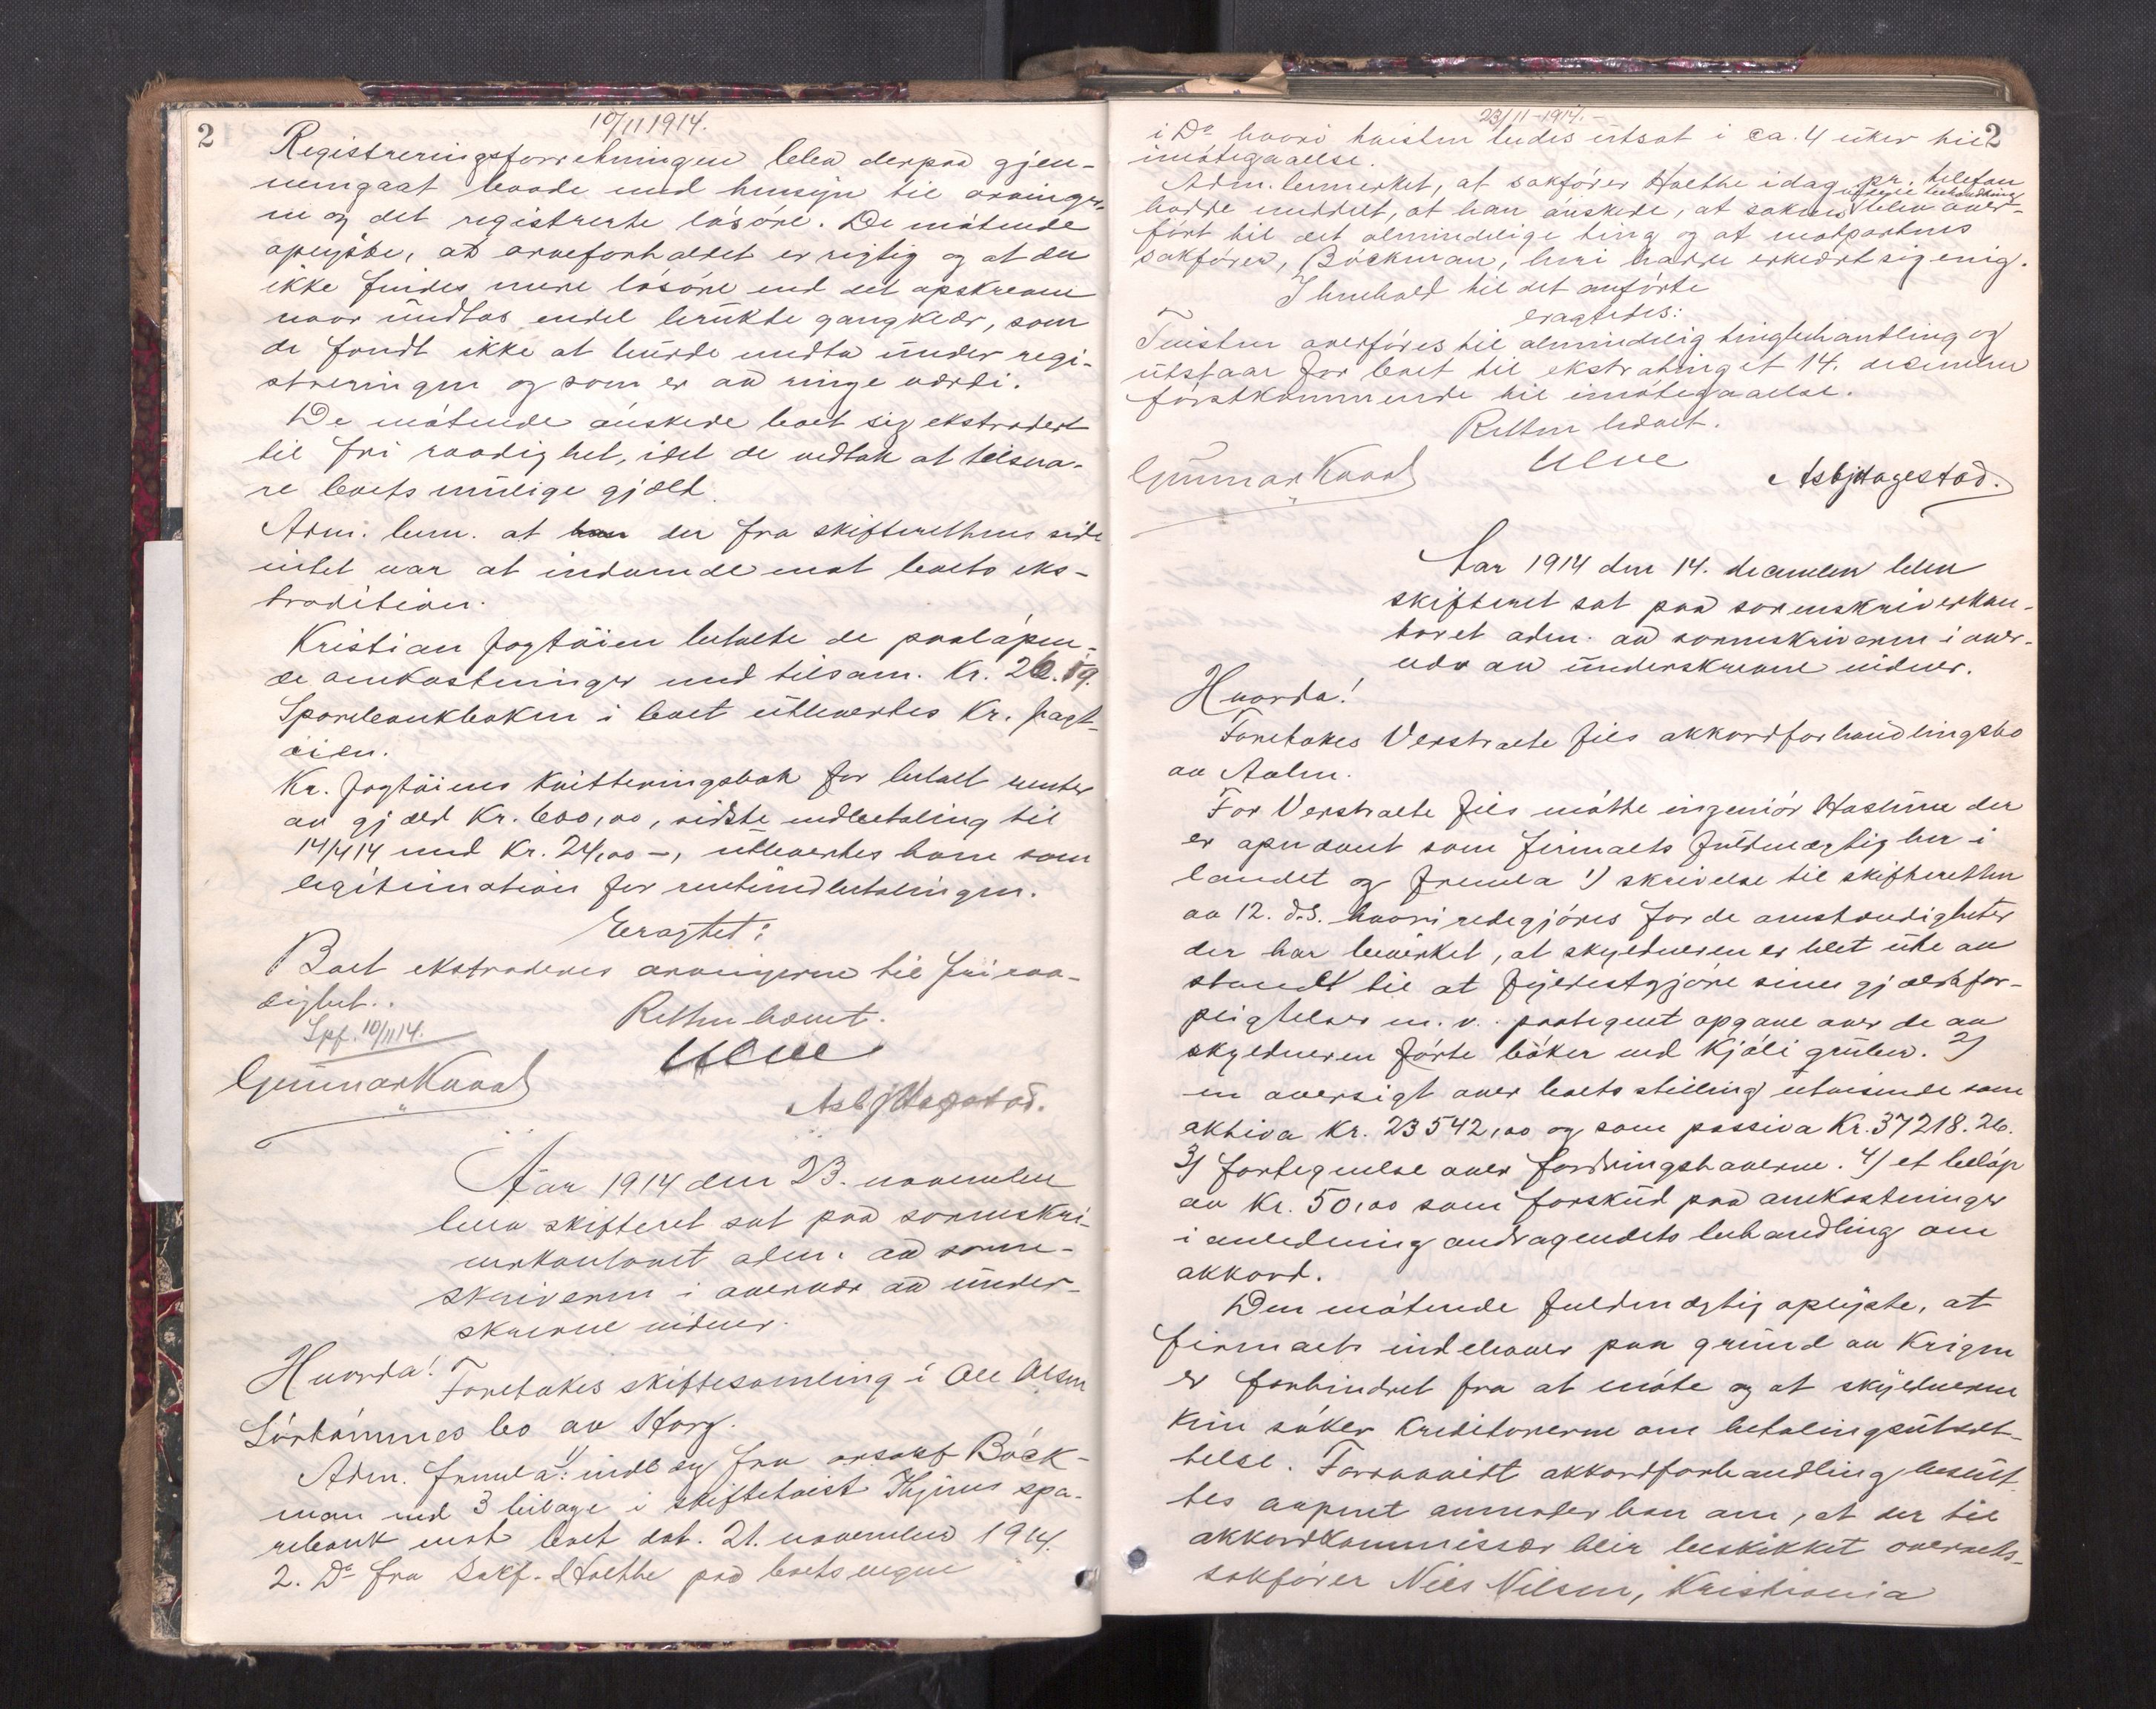 2
10/11 1914.
Registreringsforretningen blev derpaa gjen-
nemgaat baade med hensyn til arvinger-
ne og det registrerte lösöre. De mötende
oplyste, at arveforholdet er rigtig og at der
ikke findes mere lösöre end det opskrevne
naar undtas endel brukte gangklær, som
de fandt ikke at burde medta under regi-
streringen og som er av ringe værdi.
De mötende önskede boet sig ekstradert
til fri raadighet, idet de vedtok at tilsva-
re boets mulige gjæld.
Adm. bem. at der fra skifterettens side
intet var at indvende mot boets eks-
tradition.
Kristian Fagtöien betalte de paalöpen-
de omkostninger med tilsam. Kr. 26.59.
Sparebankboken i boet utlevertes Kr. Fagt-
öien.
Kr. Fagtöiens kvitteringsbok for betalt renter
av gjæld Kr. 600,00, sidste indbetaling til
14/4 14 med Kr. 24,00 -, utlevertes ham som
legitimation for renteindbetalingen.
Eragtet:
Boet ekstraderes arvingerne til fri raa-
dighet.
Retten hævet.
Spf. 10/11 14.
Ulve
Gunnar Kvaal
Asbj Hagestad.
Aar 1914 den 23. november
blev skifteret sat paa sorenskri-
verkontoret adm. av soren-
skriveren i overvær av under-
skrevne vidner.
Hvorda!
Foretokes skiftesamling i Ole Olsen
Sörtömmes bo av Horg.
Adm. fremla: 1/ indlæg fra orsakf Böck-
man med 3 bilage i skiftetvist Thjems spa-
rebank mot boet dat. 21. november 1914.
2. Do fra Sakf. Holthe paa boets vegne
23/11 - 1914.
2
i Do hvori tvisten bedes utsat i ca. 4 uker til
imötegaaelse.
Adm. bemerket, at sakförer Holthe idag pr. telefon
hadde meddelt, at han önskede, at saken blev over-
fört til det almindelige ting og at motpartens
sakförer, Böckman, heri hadde erklært sig enig.
I henhold til det anförte
eragtedes:
Tvisten överföres til almindelig tingbehandling og
utstaar for boet til ekstratinget 14. desember
förstkommende til imötegaaelse.
Retten hævet.
Gunnar Kvaal
Ulve
Asbj Hagestad.
Aar 1914 den 14. december blev
skifteret sat paa sorenskriverkon-
toret adm. av sorenskriveren i over-
vær av underskrevne vidner.
Hvorda!
Foretokes Verstraete fils akkordforhandlingsbo
av Aalen.
For Verstraete fils mötte ingeniör Hastine der
er opnævnt som firmaets fuldmægtig her i
landet og fremla 1) skrivelse til skifteretten
av 12. d.s. hvori redegjöres for de omstændigheter
der har bevirket, at skyldneren er blet ute av
stand til at fyldestgjöre sine gjældsfor-
pligtelser m. v. paategnet opgave over de av
skyldneren förte böker ved Kjöli gruber. 2)
en oversigt over boets stilling utvisende som
aktiva Kr. 23542,00 og som passiva Kr. 37218.26.
3) fortegnelse over fordringshaverne. 4) et belöp
av Kr. 50,00 som forskud paa omkostninger
i anledning andragendets behandling om
akkord.
Den mötende fuldmægtig oplyste, at
firmaets indehaver paa grund av krigen
er forhindret fra at möte og at skyldneren
kun söker kreditorerne om betalingsutsæt-
telse. Forsaavidt akkordforhandling beslut-
tes aapnet anmoder han om, at der til
akkordkommissær blir beskikket overrets-
sakförer Niels Nilsen, Kristiania